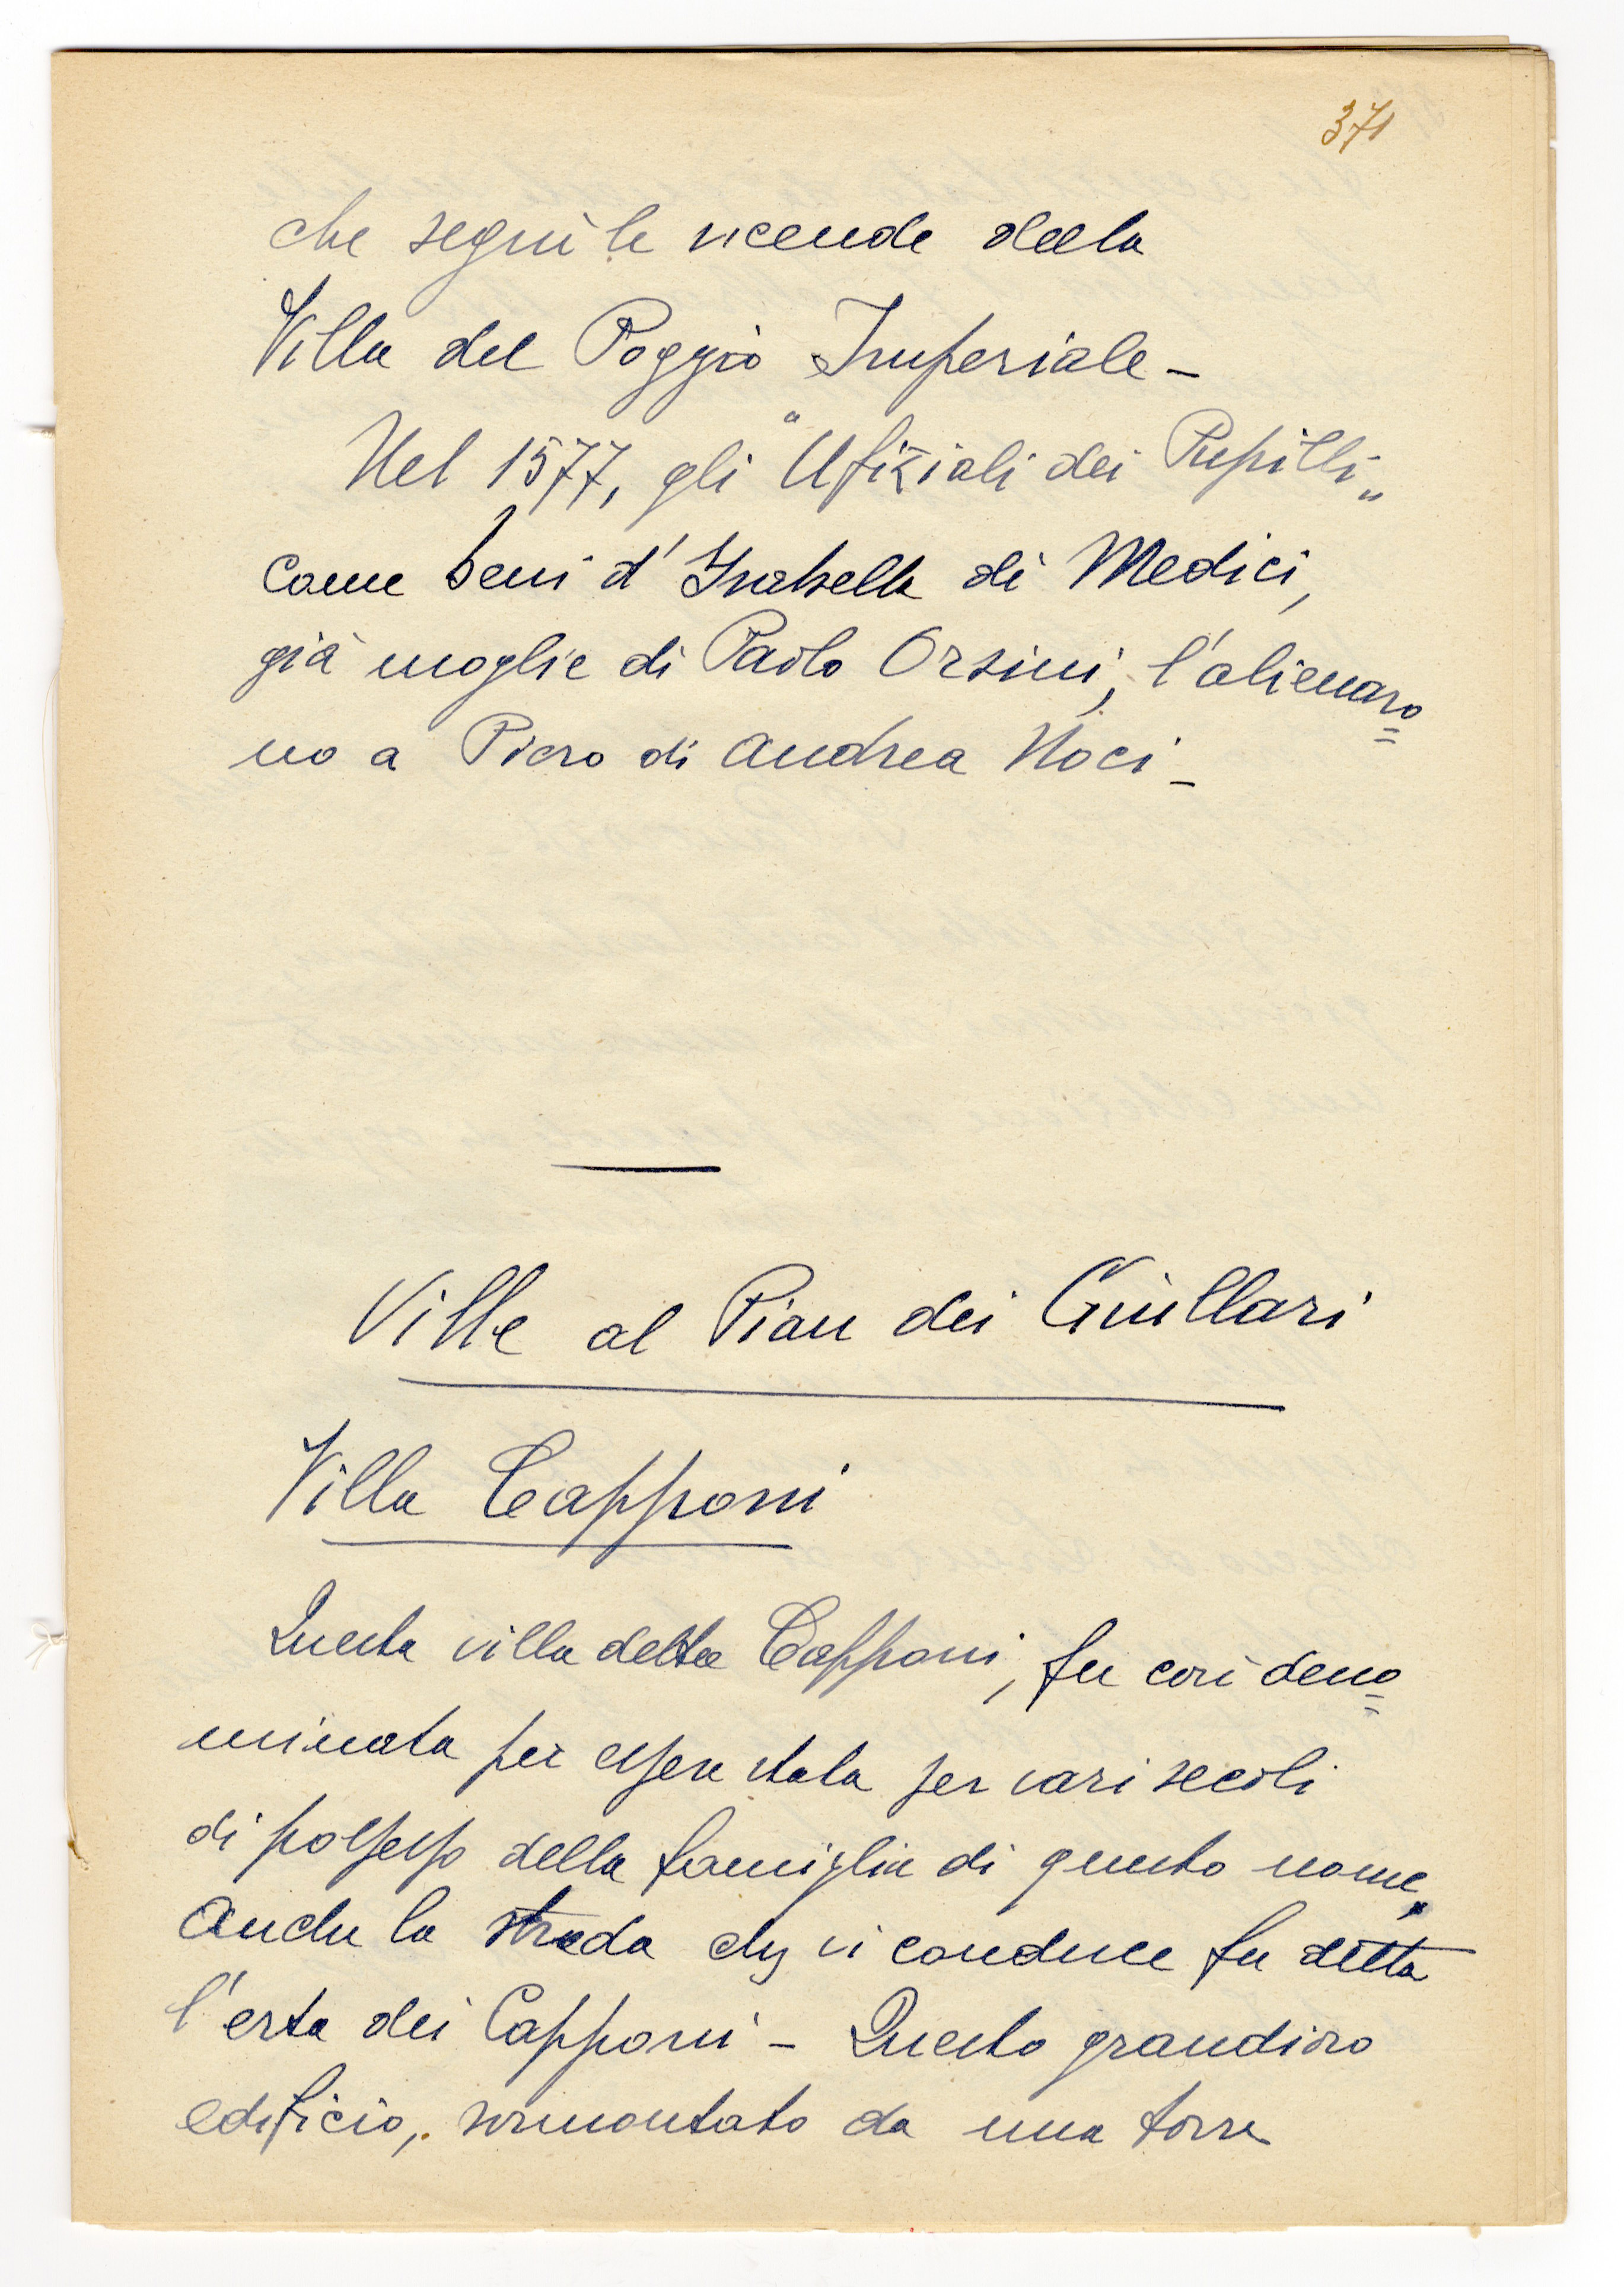 371
che seguì le vicende della
Villa del Poggio Imperiale -
Nel 1577, gli "Ufiziali dei Pupilli"
come beni d'Isabella di Medici,
già moglie di Paolo Orsini, l'alienaro=
no a Piero di Andrea Noci -
Ville al Pian dei Giullari
Villa Capponi
Questa villa detta Capponi, fu così deno=
minata per essere stata per vari secoli
di possesso della famiglia di questo nome,
anche la strada che vi conduce fu detta
l'erta dei Capponi - Questo grandioso
edificio, sormontato da una torre